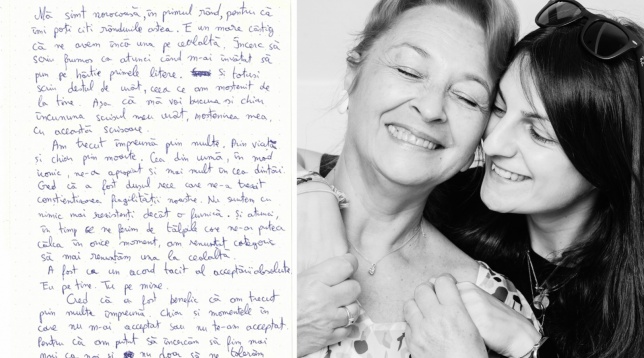 Mă simt norocoasă, în primul rând, pentru că
îmi poți citi rândurile astea. E un mare câștig
că ne avem încă una pe cealaltă. Încerc să
scriu frumos ca atunci când m-ai învățat să
pun pe hârtie primele litere. Și totuși
scriu destul de urât, ceea ce am moștenit de
la tine. Așa că mă voi bucura și chiar
încununa scrisul meu urât, moștenirea mea,
cu această scrisoare.
Am trecut împreună prin multe. Prin viață
și chiar prin moarte. Cea din urmă, în mod
ironic, ne-a apropiat și mai mult în cea dintâi.
Cred că a fost dușul rece care ne-a trezit
conștientizarea fragilității noastre. Nu suntem cu
nimic mai rezistenți decât o furnică. Și atunci,
în timp ce ne ferim de tălpile care ne-ar putea
călca în orice moment, am renunțat categoric
să mai renunțăm una la cealaltă.
A fost ca un acord tacit al acceptării absolute.
Eu pe tine. Tu pe mine.
Cred că a fost benefic că am trecut
prin multe împreună. Chiar și momentele în
care nu m-ai acceptat sau nu te-am acceptat.
Pentru că am putut să încercăm să fim mai
noi și nu doar să ne tolerăm